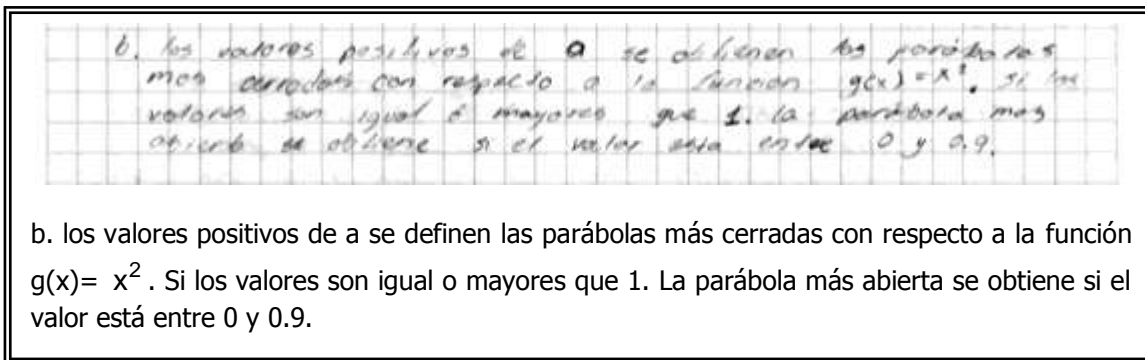 b. los valores positivos de a se obtienen las parábolas
mas cerradas con respecto a la función g(x) = x². si los
valores son igual ó mayores que 1. la parábola mas
abierta se obtiene si el valor esta entre 0 y 0.9.
b. los valores positivos de a se definen las parábolas más cerradas con respecto a la función
g(x)= x². Si los valores son igual o mayores que 1. La parábola más abierta se obtiene si el
valor está entre 0 y 0.9.